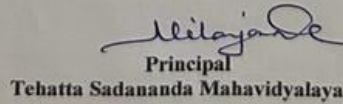 Principal
Tehatta Sadananda Mahavidyalaya